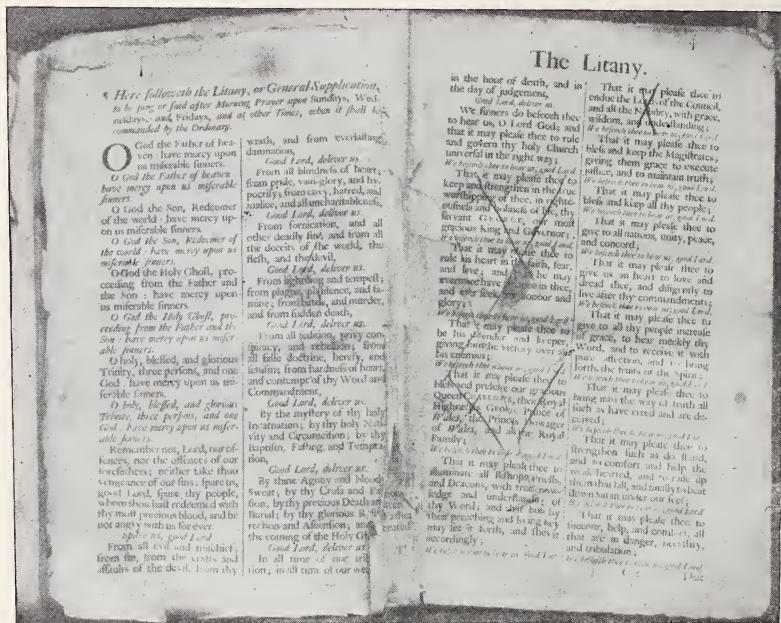 ¶ Here followeth the Litany, or General Supplication,
to be sung or said after Morning Prayer upon Sundays, Wed-
nesdays, and Fridays, and at other Times, when it shall be
commanded by the Ordinary.
O God the Father of hea-
ven: have mercy upon
us miserable sinners.
O God the Father of heaven:
have mercy upon us miserable
sinners.
O God the Son, Redeemer
of the world: have mercy up-
on us miserable sinners.
O God the Son, Redeemer of
the world: have mercy upon us
miserable sinners.
O God the Holy Ghost, pro-
ceeding from the Father and
the Son: have mercy upon
us miserable sinners.
O God the Holy Ghost, pro-
ceeding from the Father and the
Son: have mercy upon us miser-
able sinners.
O holy, blessed, and glorious
Trinity, three persons, and one
God: have mercy upon us mi-
serable sinners.
O holy, blessed, and glorious
Trinity, three persons, and one
God: have mercy upon us miser-
able sinners.
Remember not, Lord, our of-
fences, nor the offences of our
forefathers; neither take thou
vengeance of our sins: spare us,
good Lord, spare thy people,
whom thou hast redeemed with
thy most precious blood, and be
not angry with us for ever.
Spare us, good Lord
From all evil and mischief;
from sin, from the crafts and
assaults of the devil, from thy
wrath, and from everlasting
damnation,
Good Lord, deliver us.
From all blindness of heart;
from pride, vain-glory, and hy-
pocrisy; from envy, hatred, and
malice, and all uncharitableness,
Good Lord, deliver us.
From fornication, and all
other deadly sin; and from all
the deceits of the world, the
flesh, and the devil,
Good Lord, deliver us.
From lightning and tempest;
from plague, pestilence, and fa-
mine; from battle, and murder,
and from sudden death,
Good Lord, deliver us.
From all sedition, privy con-
spiracy, and rebellion; from
all false doctrine, heresy, and
schism; from hardness of heart,
and contempt of thy Word and
Commandment,
Good Lord, deliver us.
By the mystery of thy holy
Incarnation; by thy holy Nati-
vity and Circumcision; by thy
Baptism, Fasting, and Tempta-
tion,
Good Lord, deliver us.
By thine Agony and Bloody
Sweat; by thy Cross and Pa
sion, by thy precious Death an
Burial; by thy glorious R
rection and Ascension, and
the coming of the Holy G
Good Lord, deliver us.
In all time of our tri
tion; in all time of our we
Father
created
The Litany.
in the hour of death, and in
the day of judgement,
Good Lord, deliver us.
We sinners do beseech thee
to hear us, O Lord God; and
that it may please thee to rule
and govern thy holy Church
universal in the right way;
We beseech thee to hear us, good Lord.
That it may please thee to
keep and strengthen in the true
worshipping of thee, in righte-
ousness and holiness of life, thy
servant GEORGE, our most
gracious King and Governor;
We beseech thee to hear us, good Lord.
That it may please thee to
rule his heart in thy faith, fear,
and love; and he may
evermore have in thee,
and ever seek honour and
glory;
We beseech thee to hear us, good Lord
That it may please thee to
be his defender and keeper,
giving him the victory over all
his enemies;
We beseech thee to hear us, good Lord
That it may please thee to
bless and preserve our gracious
Queen CHARLOTTE, their Royal
Highnesses George Prince of
Wales, the Princess Dowager
of Wales, and all the Royal
Family;
We beseech thee to hear us, good Lord
That it may please thee to
illuminate all Bishops, Priests,
and Deacons, with true know-
ledge and understanding of
thy Word; and that both by
their preaching and living they
may set it forth, and shew it
accordingly;
We beseech thee to hear us, good Lord
That it may please thee to
endue the Lords of the Council,
and all the Nobility, with grace,
wisdom, and understanding;
We beseech thee to hear us, good Lord
That it may please thee to
bless and keep the Magistrates;
giving them grace to execute
justice, and to maintain truth;
We beseech thee to hear us, good Lord.
That it may please thee to
bless and keep all thy people;
We beseech thee to hear us, good Lord.
That it may please thee to
give to all nations, unity, peace,
and concord;
We beseech thee to hear us, good Lord.
That it may please thee to
give us an heart to love and
dread thee, and diligently to
live after thy commandments;
We beseech thee to hear us, good Lord.
That it may please thee to
give to all thy people increase
of grace, to hear meekly thy
Word, and to receive it with
pure affection, and to bring
forth the fruits of the Spirit;
We beseech thee to hear us, good Lord
That it may please thee to
bring into the way of truth all
such as have erred and are de-
ceived;
We beseech thee to hear us, good Lord
That it may please thee to
strengthen such as do stand,
and to comfort and help the
weak-hearted, and to raise up
them that fall, and finally to beat
down Satan under our feet;
We beseech thee to hear us, good Lord
That it may please thee to
succour, help, and comfort, all
that are in danger, necessity,
and tribulation;
We beseech thee to hear us, good Lord
That